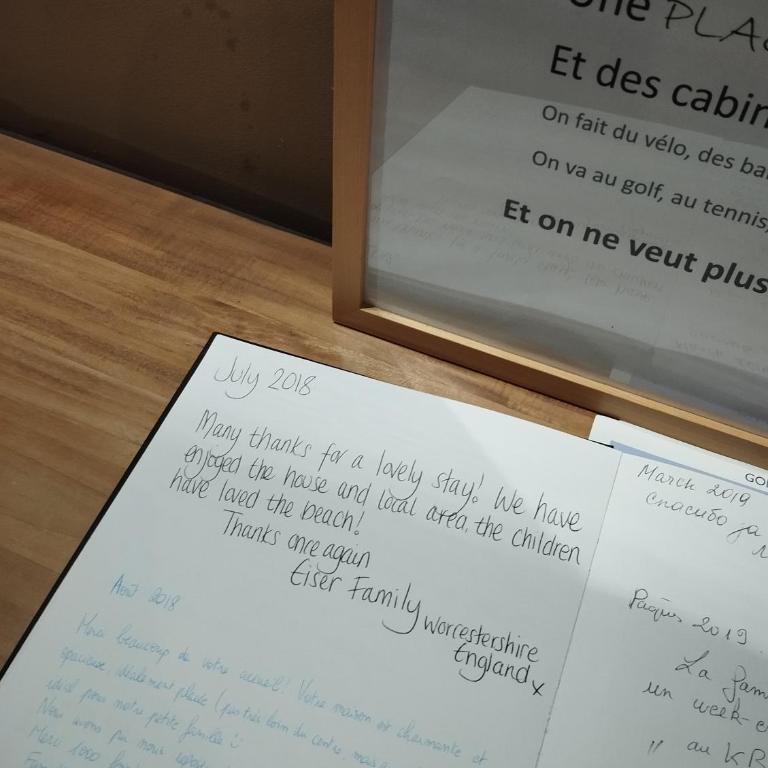 une PLA
Et des cabin
On fait du vélo, des ba
On va au golf, au tennis,
Et on ne veut plus
July 2018
Many thanks for a lovely stay! We have
enjoyed the house and local area, the children
have loved the beach!
Thanks once again
Eiser Family
Worcestershire
England x
Août 2018
Merci beaucoup de votre accueil! Votre maison est charmante et
spacieuse, idéalement placée (pas très loin du centre, mais
idéal pour notre petite famille
Nous avons pu nous
Merci 1000
GO
March 2019
Спасибо за
Pâques 2019
La fam
un week-e
au KR